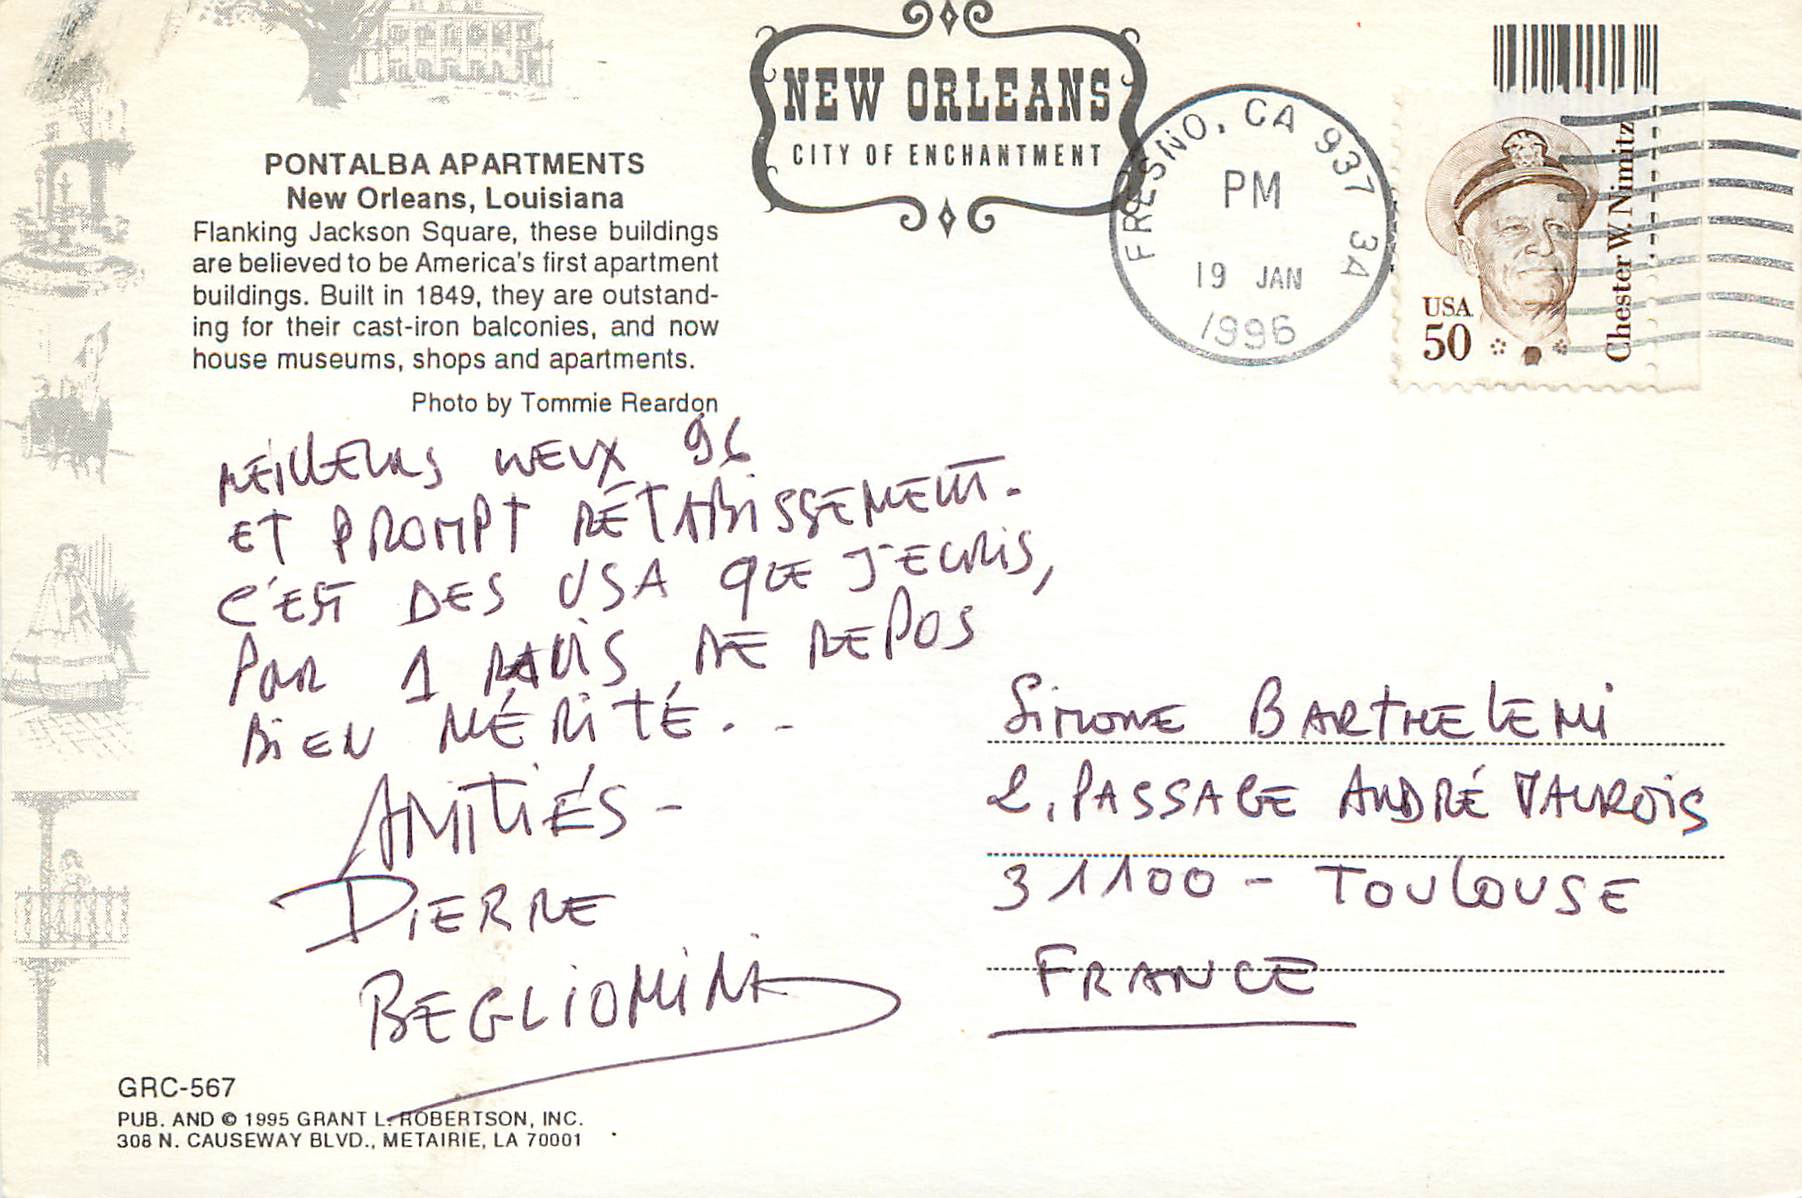 NEW ORLEANS
CITY OF ENCHANTMENT
PONTALBA APARTMENTS
New Orleans, Louisiana
Flanking Jackson Square, these buildings
are believed to be America's first apartment
buildings. Built in 1849, they are outstand-
ing for their cast-iron balconies, and now
house museums, shops and apartments.
Photo by Tommie Reardon
FRESNO, CA 937 3A
PM
19 JAN
1996
USA
50
Chester W. Nimitz
MEILLEURS WEUX 96
ET PROMPT RÉTABISSEMENT.
C'EST DES USA QUE J'ECRIS,
POUR 1 MOIS DE REPOS
BIEN MÉRITÉ...
AMITIÉS -
PIERRE
BEGLIOMINI
Simone BARTHELEMI
2, PASSAGE ANDRÉ MAUROIS
31100 - TOULOUSE
FRANCE
GRC-567
PUB. AND © 1995 GRANT L. ROBERTSON, INC.
308 N. CAUSEWAY BLVD., METAIRIE, LA 70001